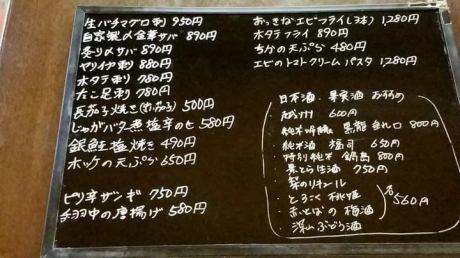 生バチマグロ刺 950円
自家製〆金華サバ 890円
炙り〆サバ 890円
ヤリイカ刺 880円
ホタテ刺 780円
たこ足刺 780円
長茄子焼き 500円
じゃがバター 塩辛のせ 580円
銀鮭塩焼き 490円
ホッケの天ぷら 650円
ピリ辛ザンギ 750円
手羽中の唐揚げ 580円
おっきなエビフライ(3本) 1,280円
ホタテフライ 890円
ちかの天ぷら 480円
エビのトマトクリームパスタ 1,280円
日本酒、果実酒 おすすめ
600円
純米吟醸 黒龍 垂れ口 800円
純米酒 福司 650円
特別純米 鍋島 800円
生酒 750円
梨のリキュール
とろこく 桃姫
あいとばの 梅酒
深山ぶどう酒
各560円